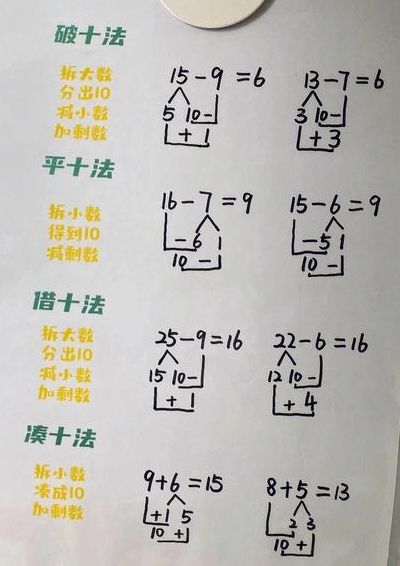 破十法
拆大数
分出10
减小数
加剩数
15-9=6
5 10-
+ 1
13-7=6
3 10-
+ 3
平十法
拆小数
得到10
减剩数
16-7=9
-6 1
10 -
15-6=9
-5 1
10 -
借十法
拆大数
分出10
减小数
加剩数
25-9=16
15 10-
+ 1
22-6=16
12 10-
+ 4
凑十法
拆小数
凑成10
加剩数
9+6=15
+1 5
10 +
8+5=13
2 3
10 +